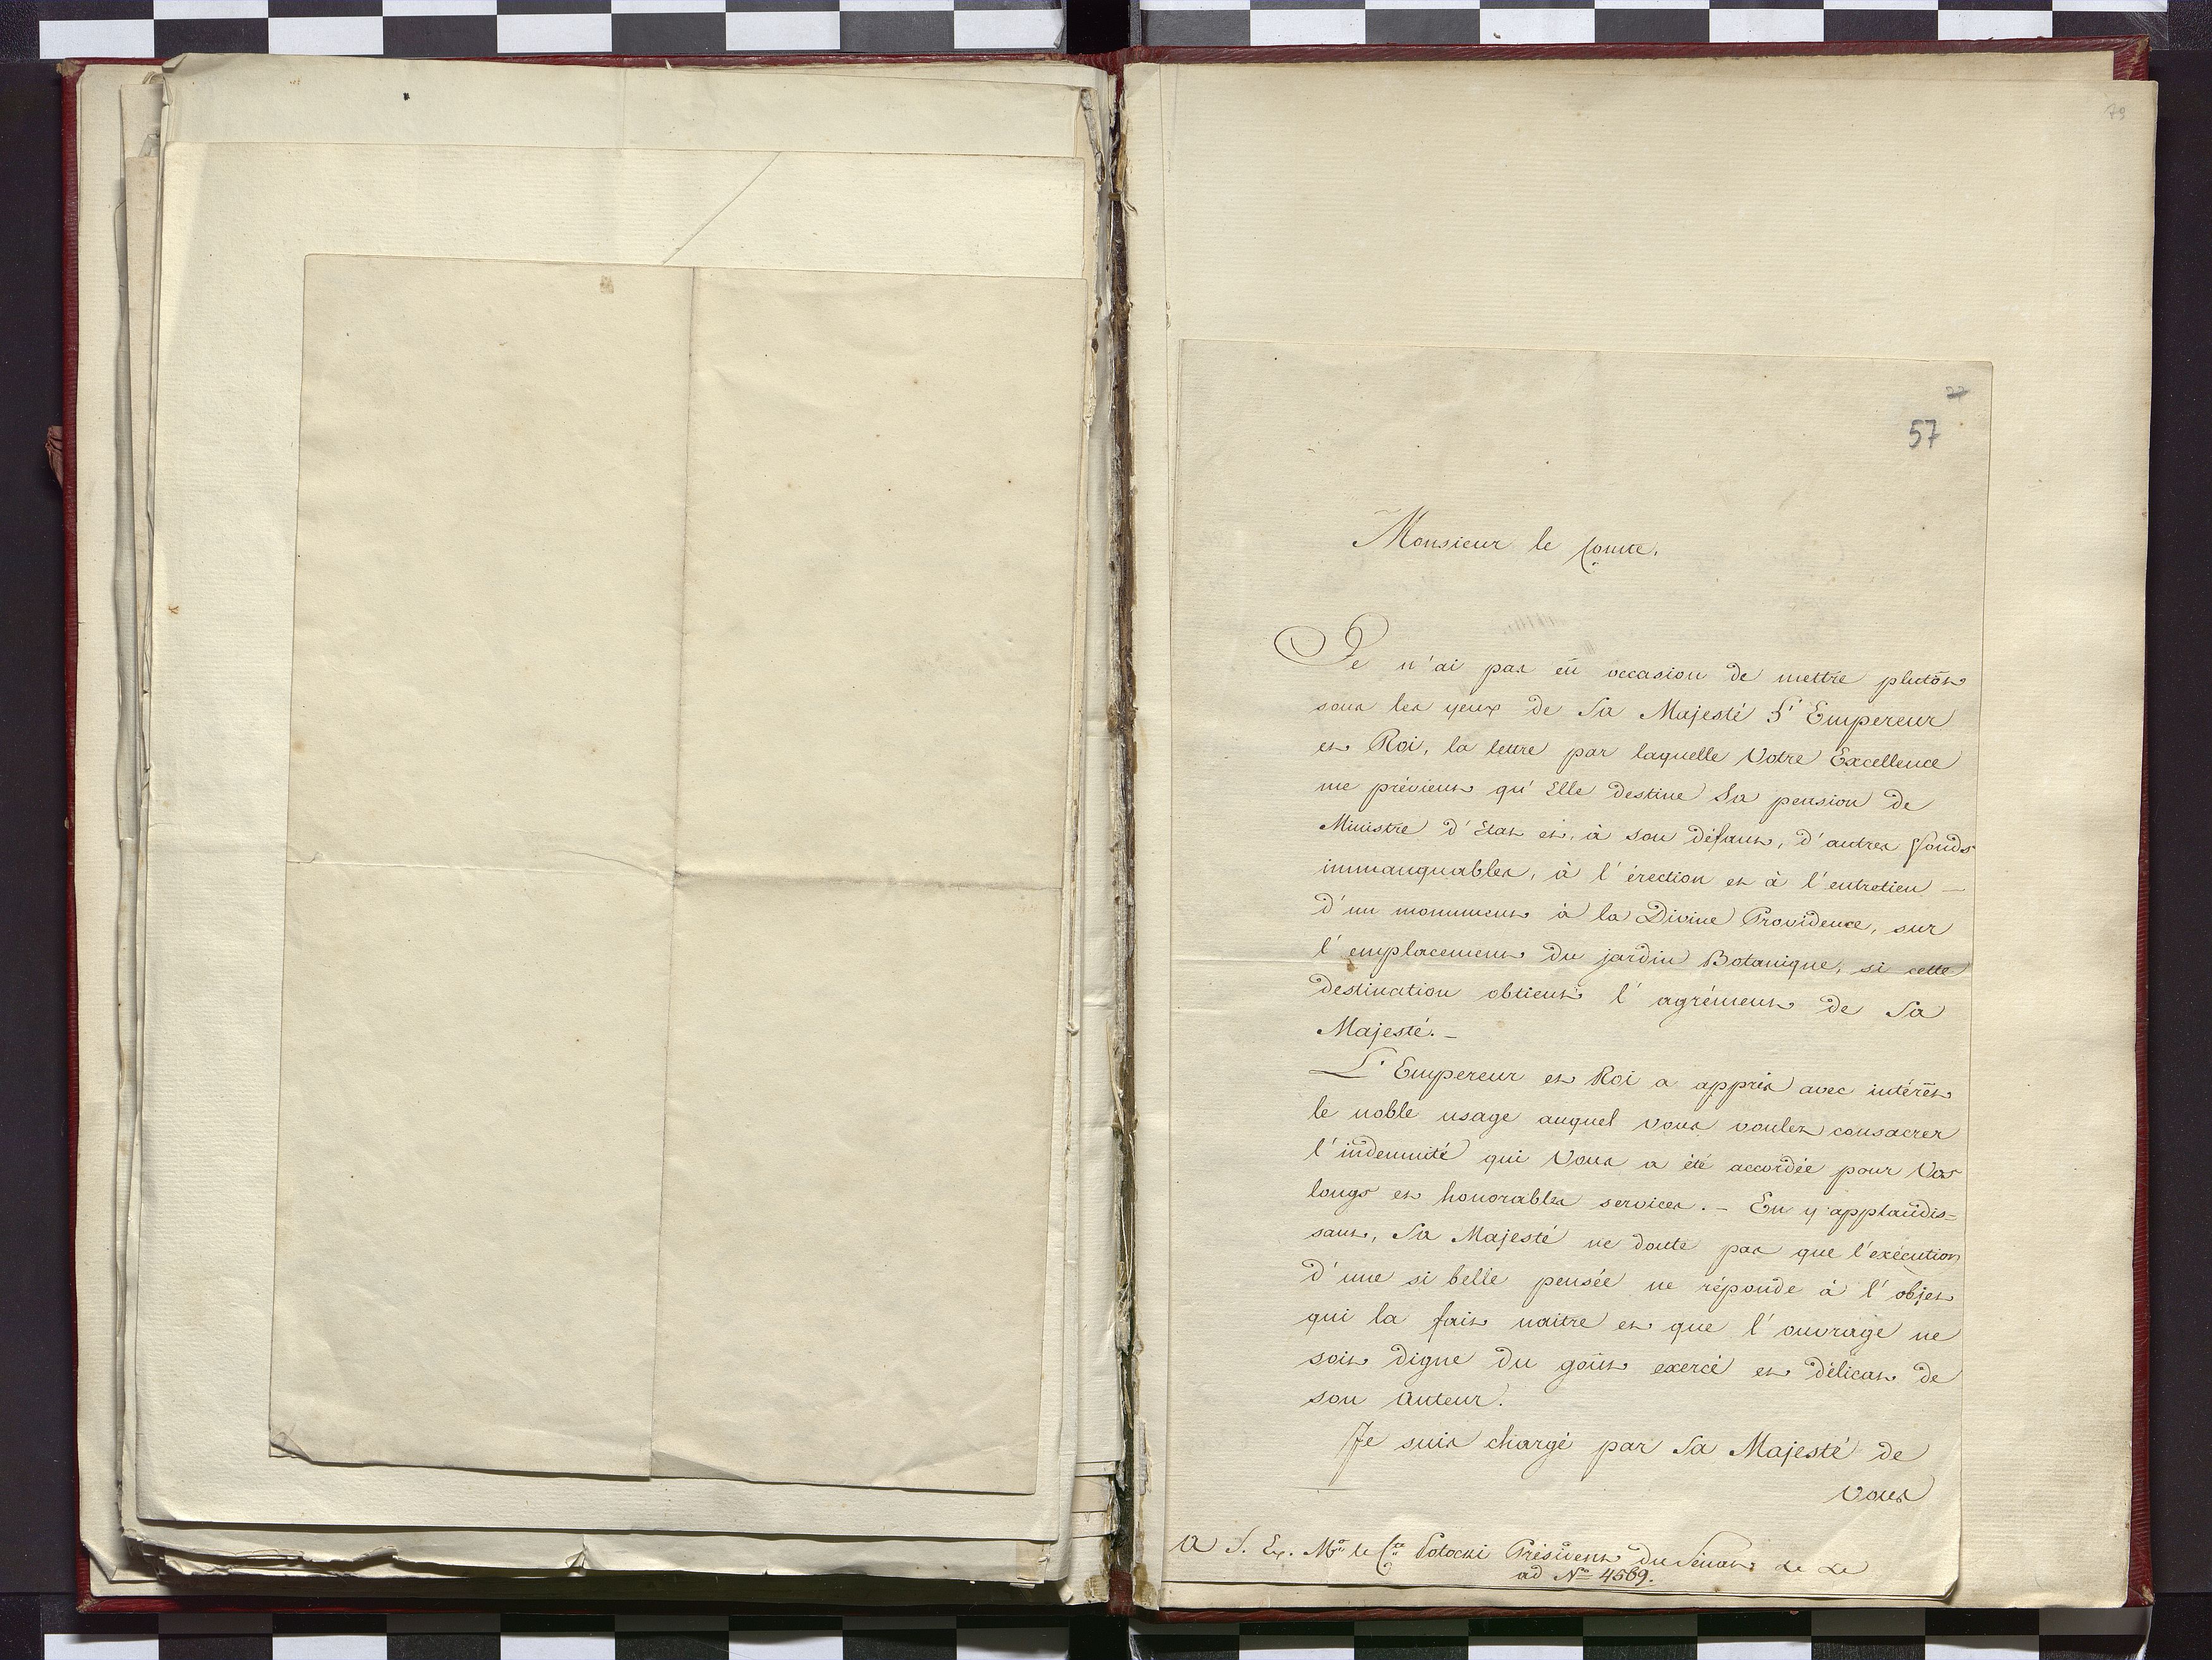 79
27
57
Monsieur le Comte.
Je n'ai pas eü occasion de mettre plutôt
sous les yeux de Sa Majesté L'Empereur
et Roi, la lettre par laquelle Votre Excellence
me prévient qu'Elle destine Sa pension de
Ministre d'Etat et, à son défaut, d'autres fonds
immanquables, à l'érection et à l'entretien —
d'un monument à la Divine Providence, sur
l'emplacement du jardin Botanique, si cette
destination obtient l'agrément de Sa
Majesté. —
L'Empereur et Roi a appris avec intérêt
le noble usage auquel vous voulez consacrer
l'indemnité qui Vous a été accordée pour Vos
longs et honorables services. — En y applaudis=
sant, Sa Majesté ne doute pas que l'exécution
d'une si belle pensée ne réponde à l'objet
qui la fait naitre et que l'ouvrage ne
soit digne du goût exercé et délicat de
son Auteur.
Je suis chargé par Sa Majesté de
vous
A S. Ex. Mr le Cte Potocki Président du Sénat &c &c
ad No 4569.